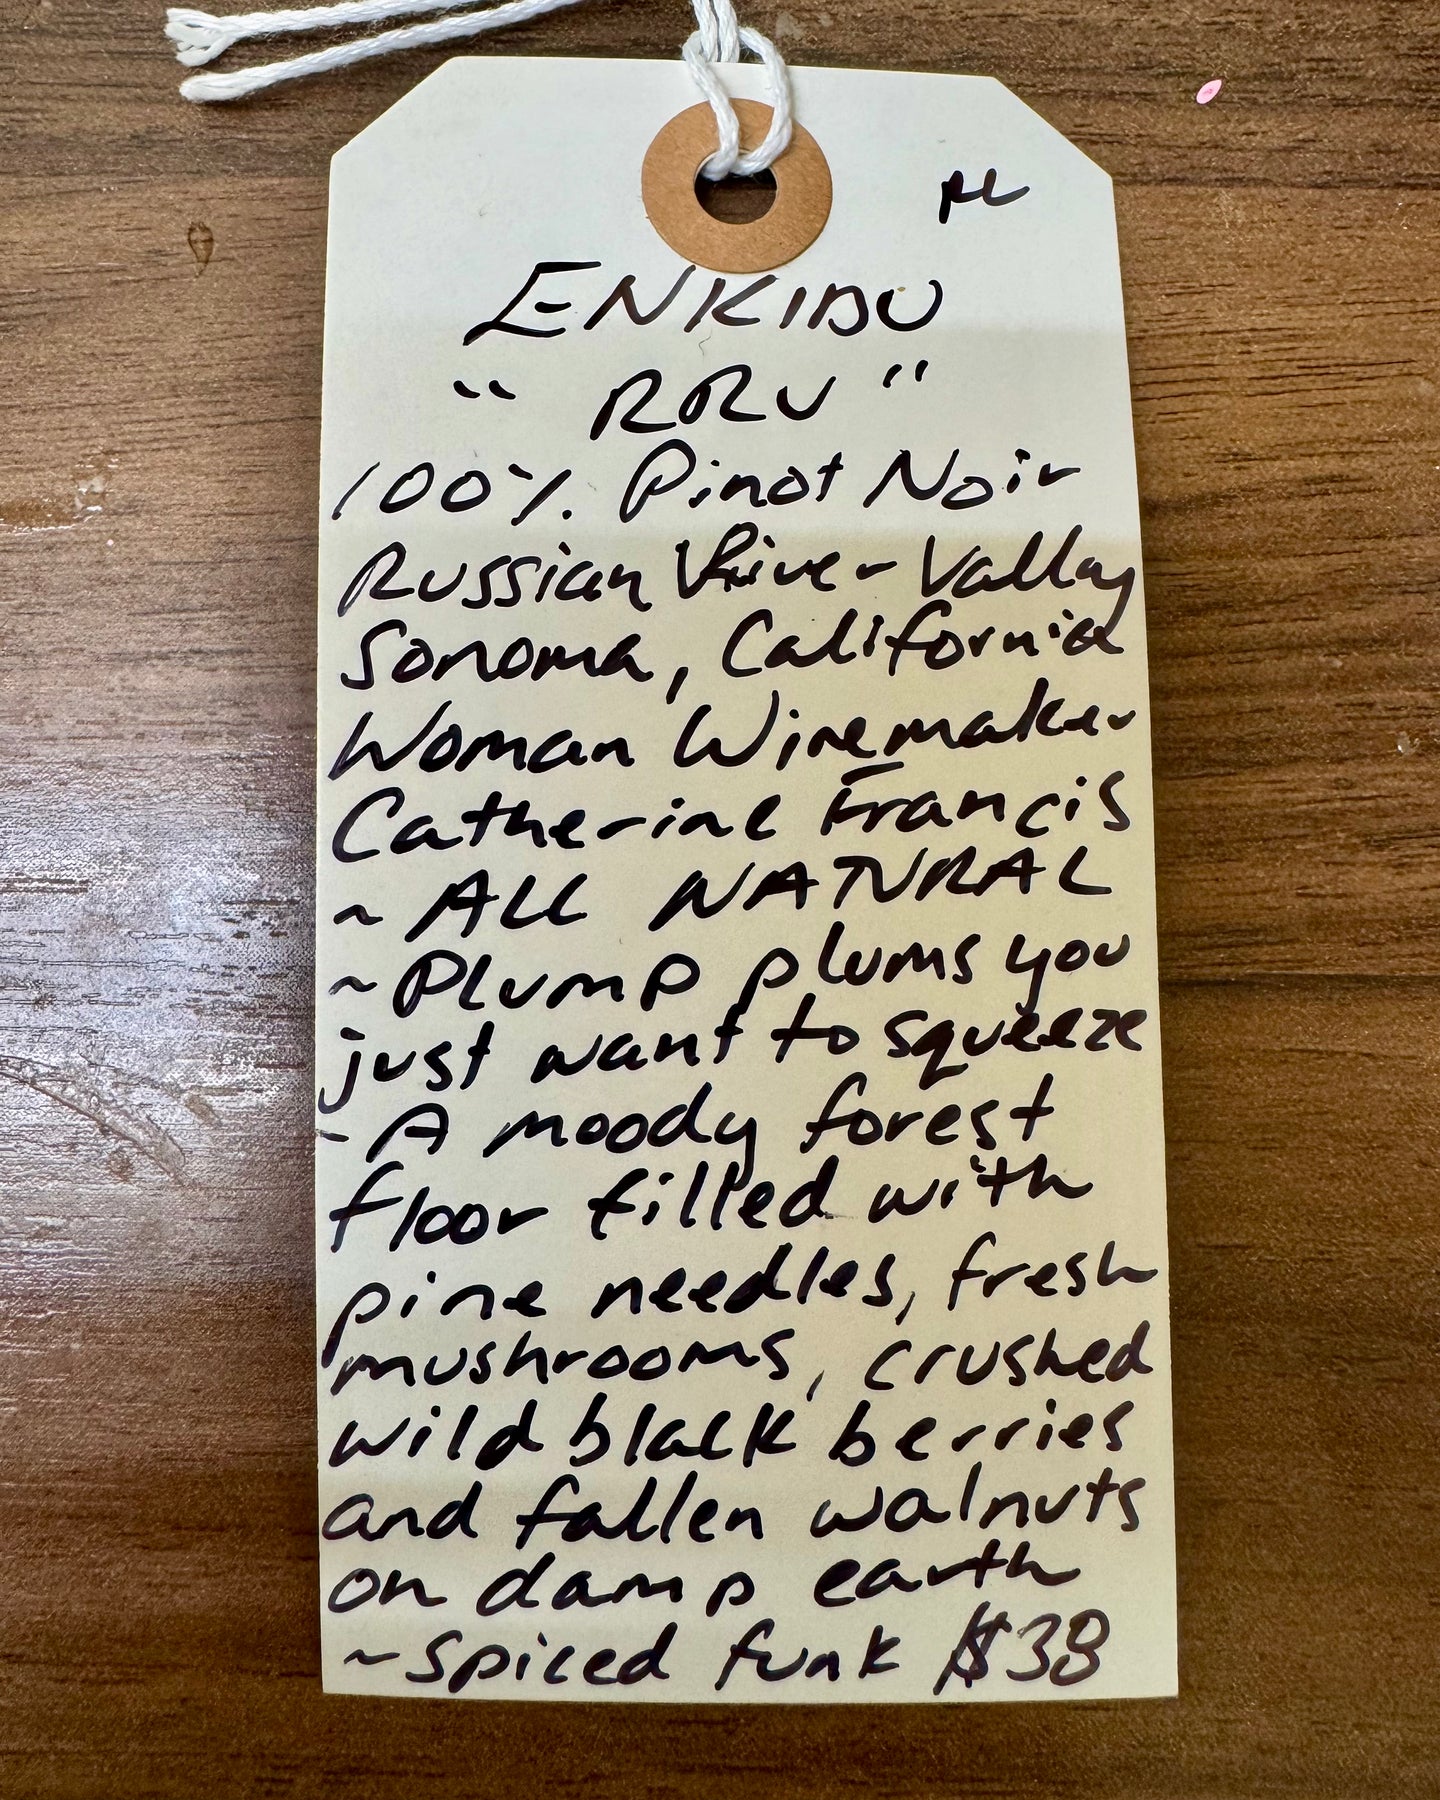 ENKIDU
"RRV"
100% Pinot Noir
Russian River Valley
Sonoma, California
Woman Winemaker
Catherine Francis
~ ALL NATURAL
~ Plump plums you
just want to squeeze
- A moody forest
floor filled with
pine needles, fresh
mushrooms, crushed
wild black berries
and fallen walnuts
on damp earth
~ spiced funk $38